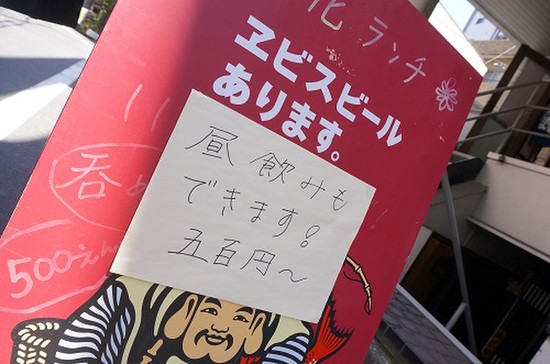 花ランチ
ヱビスビール
あります。
昼飲みも
できます!
五百円〜
呑め
500えん